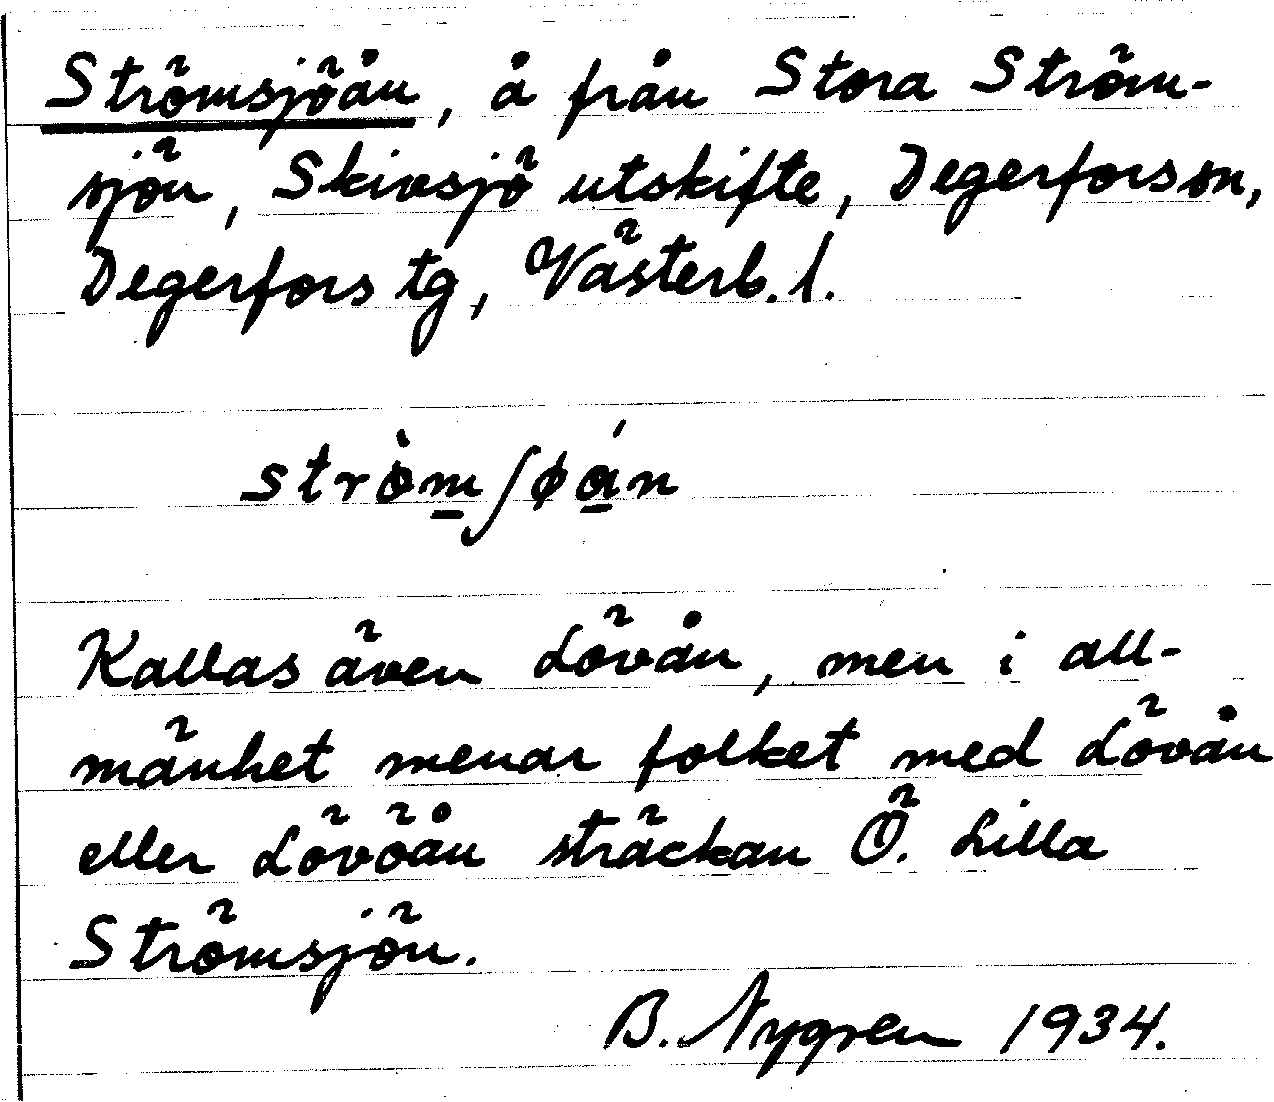 Strömsjöån, å från Stora Ström-
sjön, Skivsjö utskifte, Degerfors sn,
Degerfors tg, Västerb. l.
strò̱m̱ʃøá̱n
Kallas även Lövån, men i all-
mänhet menar folket med Lövån
eller Lövöån sträckan Ö. Lilla
Strömsjön.
B. Nygren 1934.